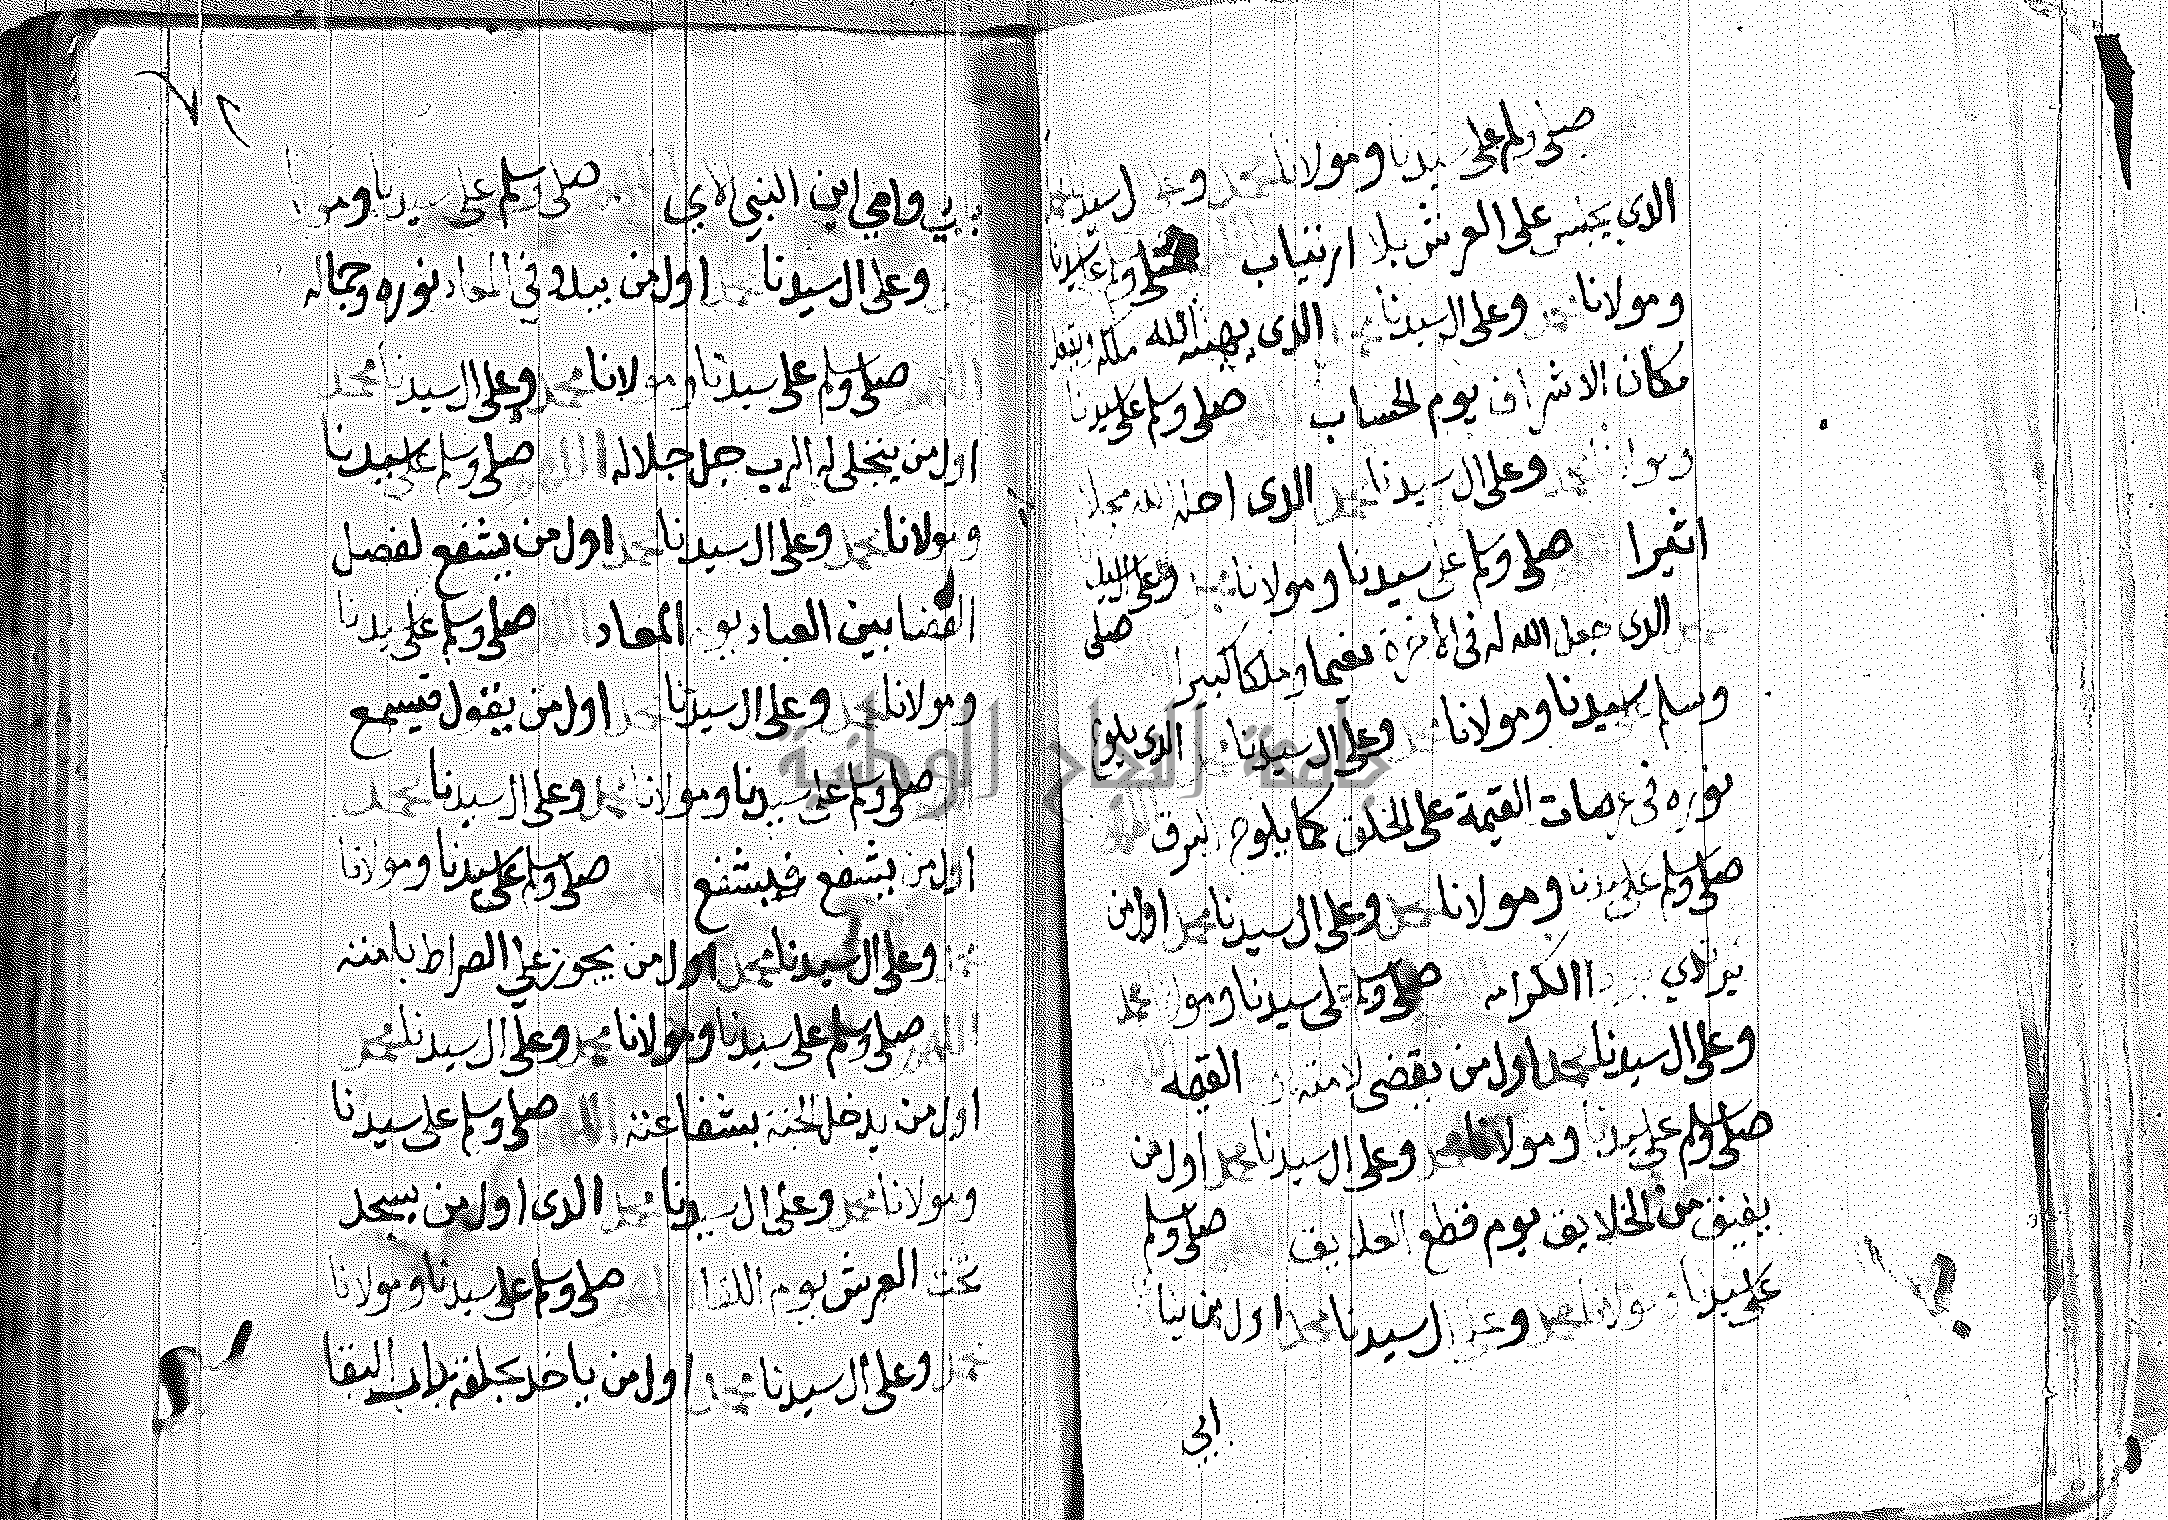 صلى وسلم على سيدنا ومولانا محمد وعلى ال سيدنا محمد
الذي يجلس على العرش بلا ارتياب صلى وسلم على سيدنا
ومولانا محمد وعلى ال سيدنا محمد الذى يهبه الله ملكه
مكان الاشراف يوم الحساب صلى وسلم على سيدنا
ومولانا محمد وعلى ال سيدنا محمد الذى
اثيرا صلى وسلم على سيدنا ومولانا محمد وعلى ال سيدنا
محمد الذى جعل الله له فى الاخرة نعيما وملكا كبيرا صلى
وسلم سيدنا ومولانا محمد وعلى ال سيدنا محمد الذى يلوح
نوره فى عرصات القيمة على الخلق كما يلوح البرق اللهم
صلى وسلم على سيدنا ومولانا محمد وعلى ال سيدنا محمد اول من
الكرامه صلى وسلم على سيدنا ومولانا محمد
وعلى ال سيدنا محمد اول من يقضى لامته القيمه
صلى وسلم على سيدنا ومولانا محمد وعلى ال سيدنا محمد اول من
يفيق من الخلايق يوم قطع العلايق صلى وسلم
على سيدنا ومولانا محمد وعلى ال سيدنا محمد اول من
ابي
٧٢
وامي اين النبي الامي صلى وسلم على سيدنا ومولانا
محمد وعلى ال سيدنا محمد اول من يبدو في المعاد نوره وجماله
اللهم صلى وسلم على سيدنا ومولانا محمد وعلى ال سيدنا محمد
اول من يتجلى له الرب جل جلاله اللهم صلى وسلم على سيدنا
ومولانا محمد وعلى ال سيدنا محمد اول من يشفع لفصل
القضا بين العباد يوم المعاد صلى وسلم على سيدنا
ومولانا محمد وعلى ال سيدنا محمد اول من يقول فيسمع
صلى وسلم على سيدنا ومولانا محمد وعلى ال سيدنا محمد
اول من يشفع فيشفع صلى وسلم على سيدنا ومولانا
محمد وعلى ال سيدنا محمد اول من يجوز على الصراط بامته
اللهم صلى وسلم على سيدنا ومولانا محمد وعلى ال سيدنا محمد
اول من يدخل الجنة بشفاعته اللهم صلى وسلم على سيدنا
ومولانا محمد وعلى ال سيدنا محمد الذى اول من يسجد
تحت العرش يوم اللقا صلى وسلم على سيدنا ومولانا
محمد وعلى ال سيدنا محمد اول من ياخد بحلقة باب البقا